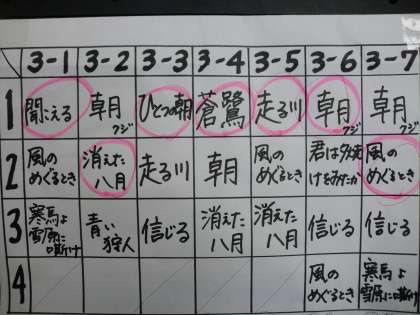 3-1 3-2 3-3 3-4 3-5 3-6 3-7
1 聞こえる 朝月 フジ ひとつの朝 蒼鷺 走る川 朝月 フジ 朝月 フジ
2 風の めぐるとき 消えた 八月 走る川 朝 風の めぐるとき 君は夕焼 けをみたか 風の めぐるとき
3 寒馬よ 雪原に 嘶け 青い 狩人 信じる 消えた 八月 消えた 八月 信じる 信じる
4 風の めぐるとき 寒馬よ 雪原に嘶け